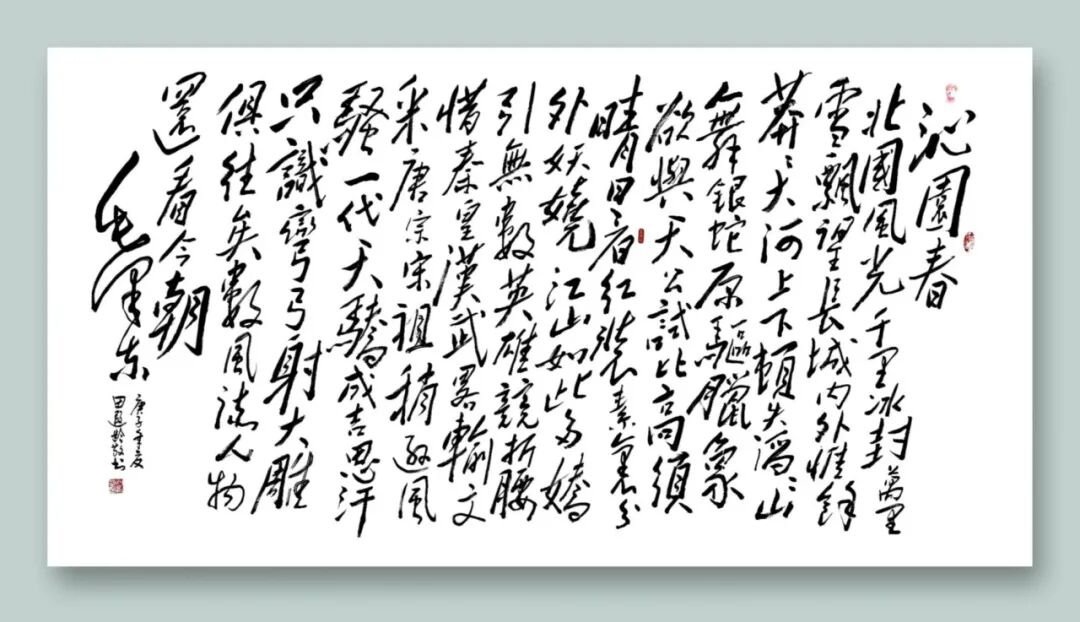 沁園春
北國風光千里冰封萬里
雪飄望長城內外惟餘
莽〻大河上下頓失滔〻山
舞銀蛇原驅臘象
欲與天公試比高須
晴日看紅裝素裹分
外妖嬈江山如此多嬌
引無數英雄競折腰
惜秦皇漢武畧輸文
采唐宗宋祖稍遜風
騷一代天驕成吉思汗
只識彎弓射大雕
俱往矣數風流人物
還看今朝
毛澤東
庚子夏
田敬書